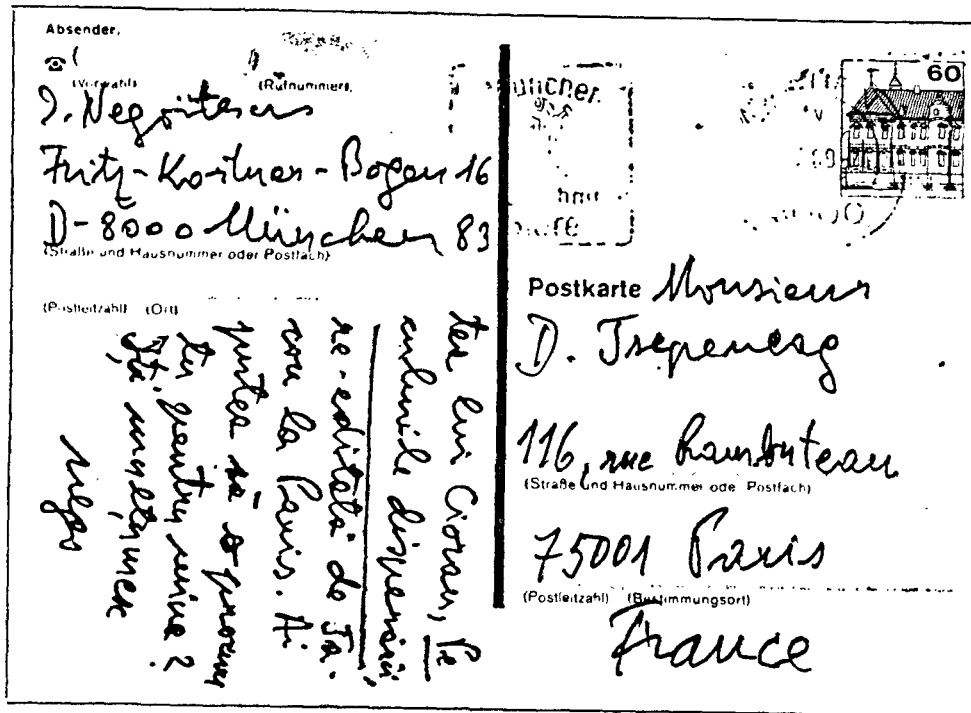 Absender.
(Vorwahl) (Rufnummer)
I. Negoițescu
Fritz-Kortner-Bogen 16
D-8000 München 83
(Straße und Hausnummer oder Postfach)
(Postleitzahl) (Ort)
tea lui Cioran, Pe
culmile disperării,
re-editată de Ia-
con la Paris. Ai
putea să o procuri
tu, pentru mine?
Îți mulțumesc
Nego
60
Postkarte Monsieur
D. Tsepeneag
116, rue Rambuteau
(Straße und Hausnummer oder Postfach)
75001 Paris
(Postleitzahl) (Bestimmungsort)
France